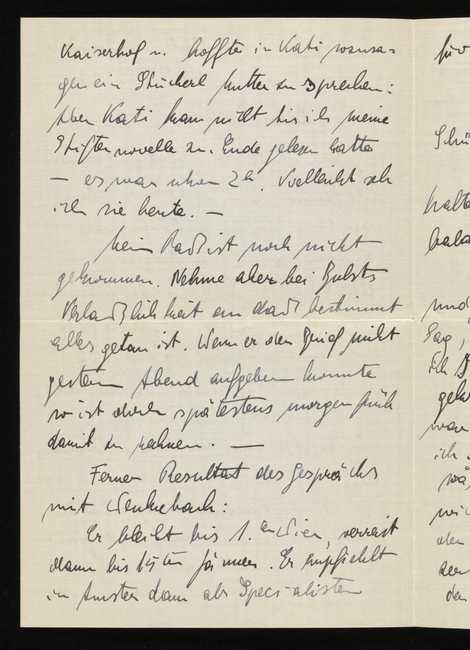 Kaiserhof u. hoffte in Kati sozusa=
gen ein Stückerl Mutter zu sprechen:
Aber Kati kam nicht bis ich meine
Stifternovelle zu Ende gelesen hatte
– es war schon 2h. Vielleicht seh
ich sie heute. –
Mein Paß ist noch nicht
gekommen. Nehme aber bei
Verläßlichkeit an daß bestimmt
alles getan ist. Wenn er den Brief nicht
gestern Abend aufgeben konnte
so ist doch spätestens morgen früh
damit zu rechnen. –
Ferner Resultat des Gesprächs
mit Wenkebach:
Er bleibt bis 1. in Wien, verreist
dann bis 15ten Jänner. Er empfiehlt
in Amsterdam als Specialisten
für
Schü
halte
und
Sag,
ich
war
ich
den